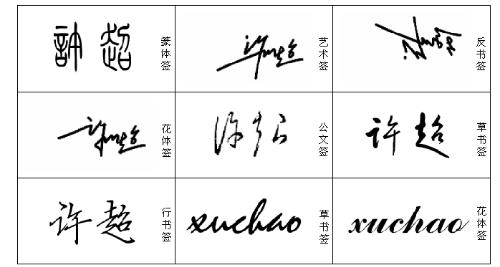 許超 篆体签
许超 艺术签
反书签
许超 花体签
许超 公文签
许超 草书签
许超 行书签
xuchao 草书签
xuchao 花体签